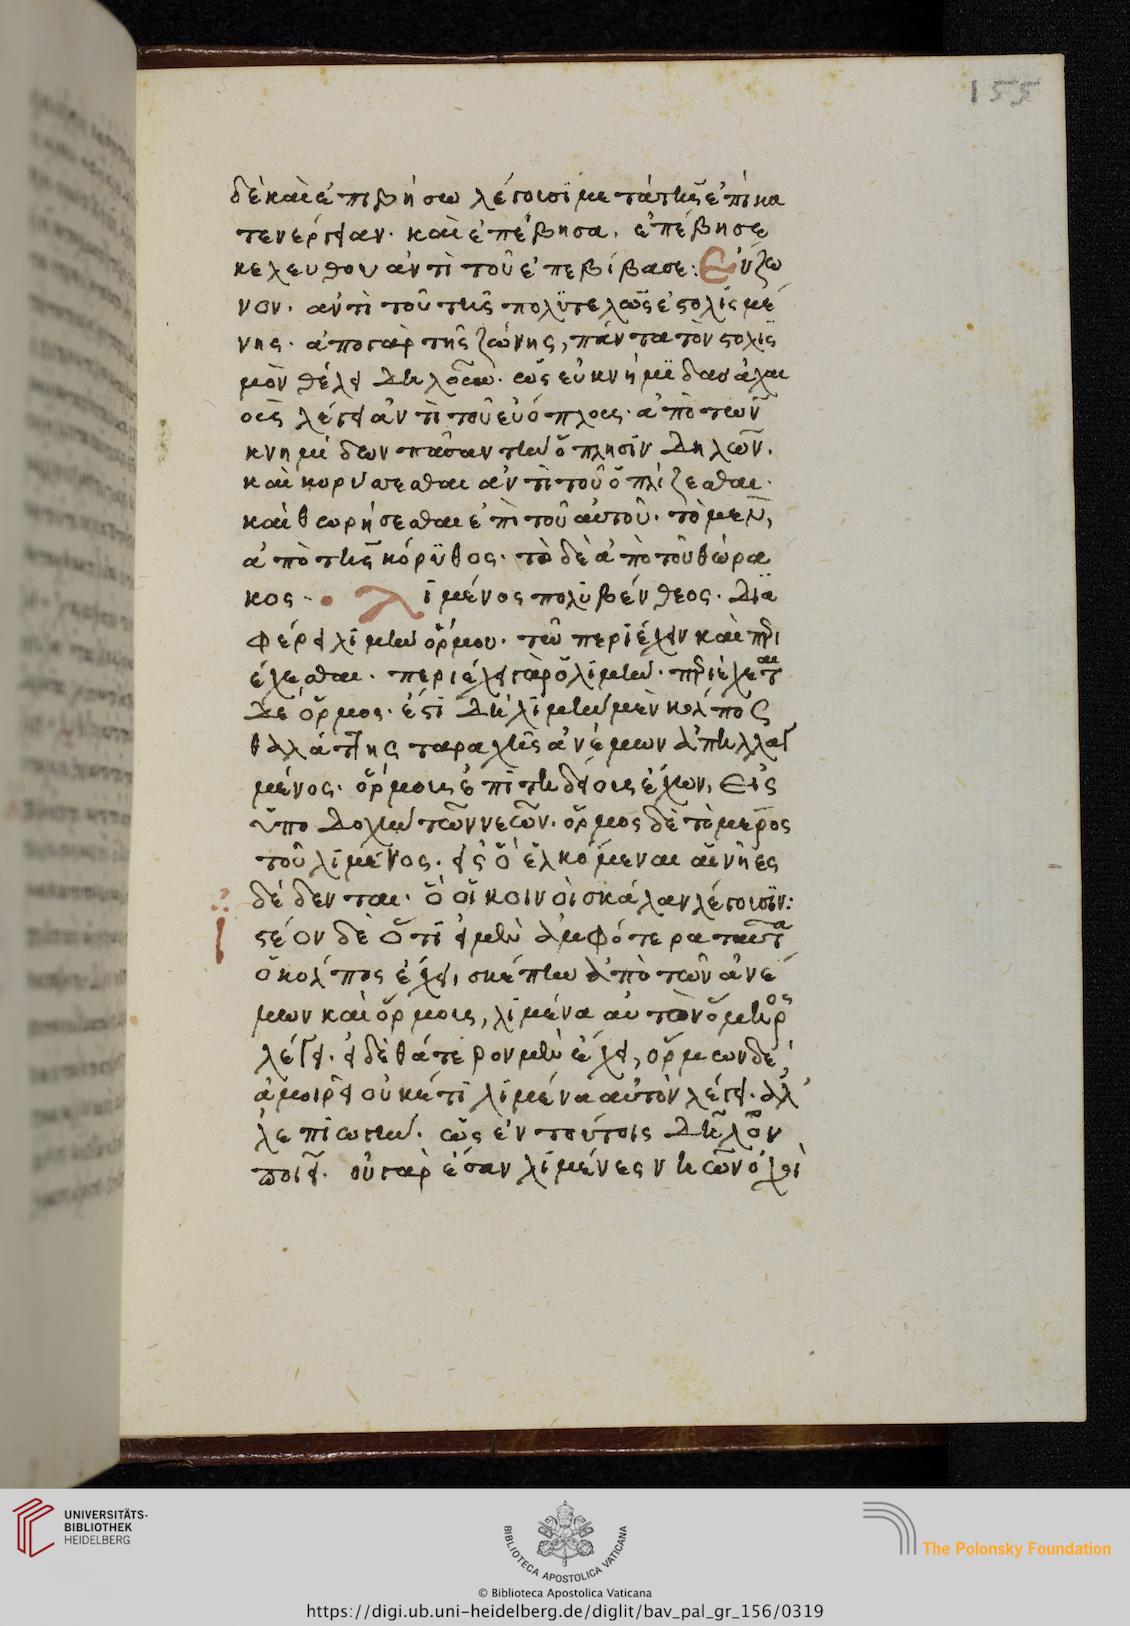 155
δὲ καὶ ἐπιβήσω λέγουσϊ μετὰ τῆς ἐπὶ κα
τενέργειαν· καὶ ἐπέβησα, ἐπέβησε
κελευθου ἀντὶ τοῦ ἐπεβίβασε: Εὐζω
νον· ἀντὶ τοῦ τῆς πολϋτελῶς ἐστολισμέ
νης· ἀπο γὰρ τῆς ζώνης, πάντα τὸν στολισ
μὸν θέλει δηλοῦν· ὡς εὐκνήμϊδας ἀχαι
οὺς λέγει ἀντὶ τοῦ εὐόπλους· ἀπὸ τῶν
κνημίδων πᾶσαν τὴν ὅπλησϊν δηλῶν.
καὶ κορύσσεσθαι ἀντὶ τοῦ ὁπλίζεσθαι·
καὶ θωρήσεσθαι ἐπὶ τοῦ αὐτοῦ· τὸ μὲν,
ἀπὸ τῆς κόρϋθος· τὸ δὲ ἀπὸ τοῦ θώρα
κος· λϊμένος πολϋβένθεος· Διὰ
φέρει λϊμὴν ὅρμου· τῶ περιέχειν καὶ περι
έχεσθαι· περιέχει γὰρ ὁ λϊμὴν· περιέχεται
δὲ ὅρμος· ἐστὶ δὴ λϊμὴν μὲν κόλπος
θαλάττης ταραχῆς ἀνέμων ἀπηλλαγ
μένος· ὅρμους ἐπϊτηδείους ἔχων, εἰς
ὑποδοχὴν τῶν νεῶν· ὅρμος δὲ τὸ μέρος
τοῦ λϊμένος· εἰς ὃ ἑλκόμεναι αἱ νῆες
δέδενται· ὃ οἱ κοινοὶ σκάλαν λέγουσϊν:
ἰστέον δὲ ὅτϊ εἰ μὲν ἀμφότερα ταῦτα
ὁ κόλπος ἔχει, σκέπην ἀπὸ τῶν ἀνέ
μων καὶ ὅρμους, λϊμένα αὐτὸν ὅμηρος
λέγει· εἰ δὲ θάτερον μὲν ἔχει, ὅρμων δὲ
ἀμοιρεῖ οὐκέτϊ λϊμένα αὐτὸν λέγει· ἀλ
λ᾽ ἐπϊωγὴν· ὡς ἐν τούτοις δῆλον
ποιεῖ· οὐ γὰρ ἔσαν λϊμένες νηῶν ὀχοὶ
UNIVERSITÄTS-
BIBLIOTHEK
HEIDELBERG
BIBLIOTECA APOSTOLICA VATICANA
The Polonsky Foundation
© Biblioteca Apostolica Vaticana
https://digi.ub.uni-heidelberg.de/diglit/bav_pal_gr_156/0319